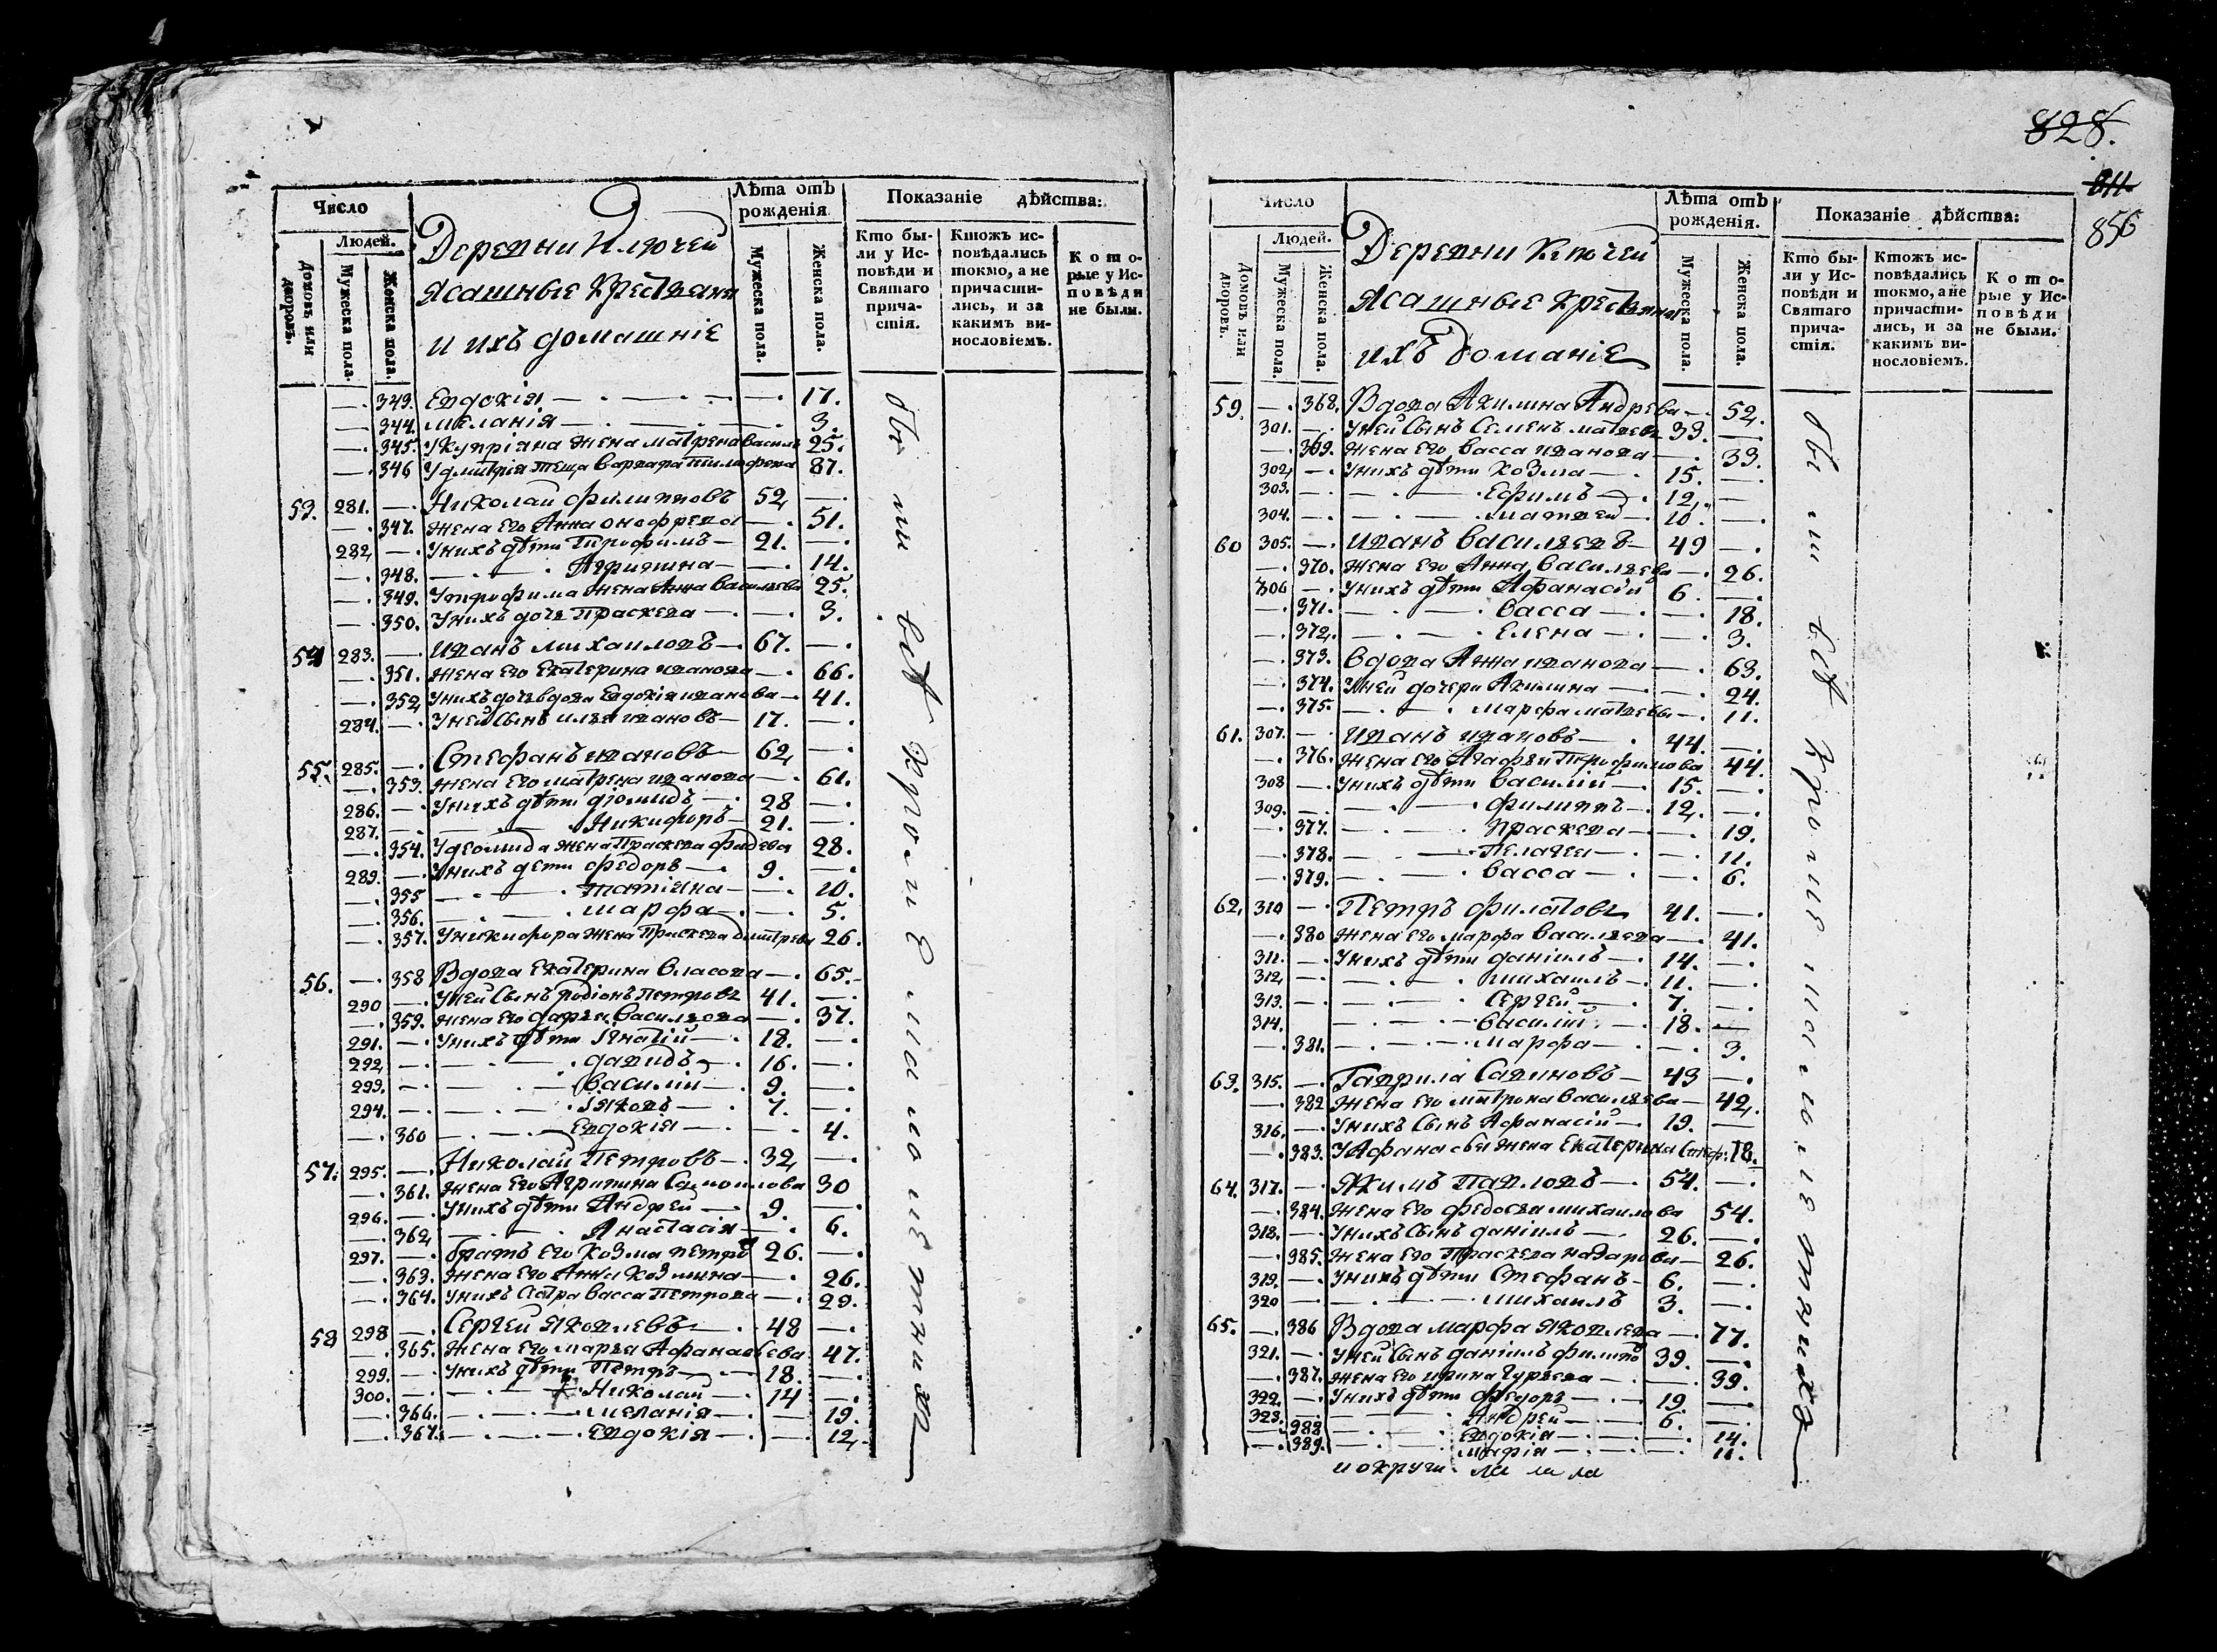 Число
Людей.
Домовъ или дворовъ.
Мужеска пола.
Женска пола.
Деревни Ключей
Ясашные крестьяня
и ихъ домашніе
Лѣта отъ рожденія
Мужеска пола.
Женска пола.
Показаніе дѣйства:
Кто были у Исповѣди и Святаго причастія.
Ктожъ исповѣдались токмо, а не причастились, и за какимъ винословіемъ.
Которые у Исповѣди не были.
—. 343. Евдокія — 17.
—. 344. Меланія — 3.
—. 345. У Купріана жена Матрена Василь 25.
—. 346 У Дмитрія теща Варвара 87.
53. 281. — Николай Филипповъ 52, —.
—. 347. Жена его Анна Онофрева — 51.
282, —. У нихъ дѣти Трофимъ — 21. —.
—. 348. — Агрипина — 14.
—. 349. У Трофима жена Анна Васильева 25.
—. 350. У нихъ дочь Праскева — 3.
54 283. —. Иванъ Михаиловъ — 67. —.
—. 351. Жена его Екатерина Иванова — 66.
—. 352, У нихъ дочь вдова Евдокія Иванова — 41.
284. —. У ней сынъ Илья Ивановъ — 17. —.
55. 285. —. Стефанъ Ивановъ — 62, —.
—. 353. Жена его Матрена Иванова — 61.
286. —. У нихъ дѣти Діомидъ — 28 —.
287. —. Никифоръ — 21. —.
—. 354. У Деомида жена Праскева Фадева 28.
289. —. У нихъ дети Федоръ — 9. —.
—. 355 — Татіяна — 10.
—. 356. — Марфа — 5.
—. 357. У Никифора жена Праскева Дмитрева 26.
56. —. 358 Вдова Екатерина Власова — 65.
290 —. У ней сынъ Родіонъ Петровъ 41. —.
—. 359. Жена его Дарья Васильева — 37.
291. —. У нихъ дѣти Игнатій — 18. —.
292, —. Давидъ — 16. —.
293. —. Василій — 9. —.
294. —. Іяковъ — 7. —.
—. 360 — Евдокія — 4.
57. 295. —. Николай Петровъ — 32, —.
—. 361. Жена его Агрипина Самоилова 30
296. —. У нихъ дѣти Андрей — 9. —.
—. 362, — Анастасія — 6.
297. —. Братъ его Козма Петро 26. —.
—. 363. Жена его Анна Козмина — 26.
—. 364. У нихъ сестра Васса Петрова — 29.
58 298 —. Сергей Яковлевъ — 48 —.
—. 365. Жена его Марья Афанасьева 47.
299. —. У нихъ дѣти Петръ — 18. —.
300. —. Николай — 14 —.
—. 366. — Меланія — 19.
—. 367. — Евдокія — 12,
бы ли всѣ
828.
811
856
Число
Людей.
Домовъ или дворовъ.
Мужеска пола.
Женска пола.
Деревни Ключей
Ясашные крестьяня
ихъ доманіе
Лѣта отъ рожденія.
Мужеска пола.
Женска пола.
Показаніе дѣйства:
Кто были у Исповѣди и Святаго причастія.
Ктожъ исповѣдались токмо, а не причастились, и за какимъ винословіемъ.
Которые у Исповѣди не были.
59. —. 368. Вдова Акилина Андрева — 52,
301. —. У ней сынъ Семенъ Матвевъ 33. —
—. 369. Жена его Васса Иванова — 33.
302, —. У нихъ дѣти Козма — 15. —.
303. —. Ефимъ — 12, —
304. —. Матвей — 10. —.
60 305. —. Иванъ Васильевъ — 49 —.
—. 370. Жена его Анна Васильева — 26.
306 —. У нихъ дѣти Афанасій 6. —.
—. 371. — Васса — 18.
—. 372, — Елена — 3.
—. 373. Вдова Анна Иванова — 63.
—. 374. У ней дочери Акилина — 24.
—. 375. — Марфа Матвевы — 11.
61. 307. —. Иванъ Ивановъ — 44. —.
—. 376. Жена его Агафья Трофимова 44.
308 —. У нихъ дѣти Василій — 15. —.
309. —. Филиппъ — 12, —.
—. 377. — Праскева — 19.
—. 378. — Пелагея — 11.
—. 379. — Васса — 6.
62, 310 —. Петръ Филатовъ 41. —.
—. 380 Жена его Марфа Васильева — 41.
311. —. У нихъ дѣти Даніилъ — 14. —.
312, —. Михаилъ — 11. —.
313. —. Сергей — 7. —.
314. —. Василій — 18. —
—. 381. — Марфа — 3.
63. 315. —. Гаврила Савиновъ — 43 —.
—. 382 Жена его Матрона Васильева — 42,
316. —. У нихъ сынъ Афанасій — 19. —
—. 383. У Афанасья жена Екатерина Стеф: 18.
64. 317. —. Якимъ Павловъ — 54. —.
—. 384. Жена его Федосья Михаилова 54.
318. —. У нихъ сынъ Даніилъ — 26. —.
—. 385. Жена его Праскева Назарова — 26.
319. —. У нихъ дѣти Стефанъ — 6. —.
320 —. Михаилъ 3. —.
65. —. 386 Вдова Марфа Яковлева — 77.
321. —. У ней сынъ Даніилъ Филипо 39. —.
—. 387. Жена его Ирина Гурьева — 39.
322, —. У нихъ дѣти Федоръ — 19. —.
323. —. Андрей — 6. —.
—. 388 — Евдокія — 14.
—. 389. — Марія — 11.
бы ли всѣ